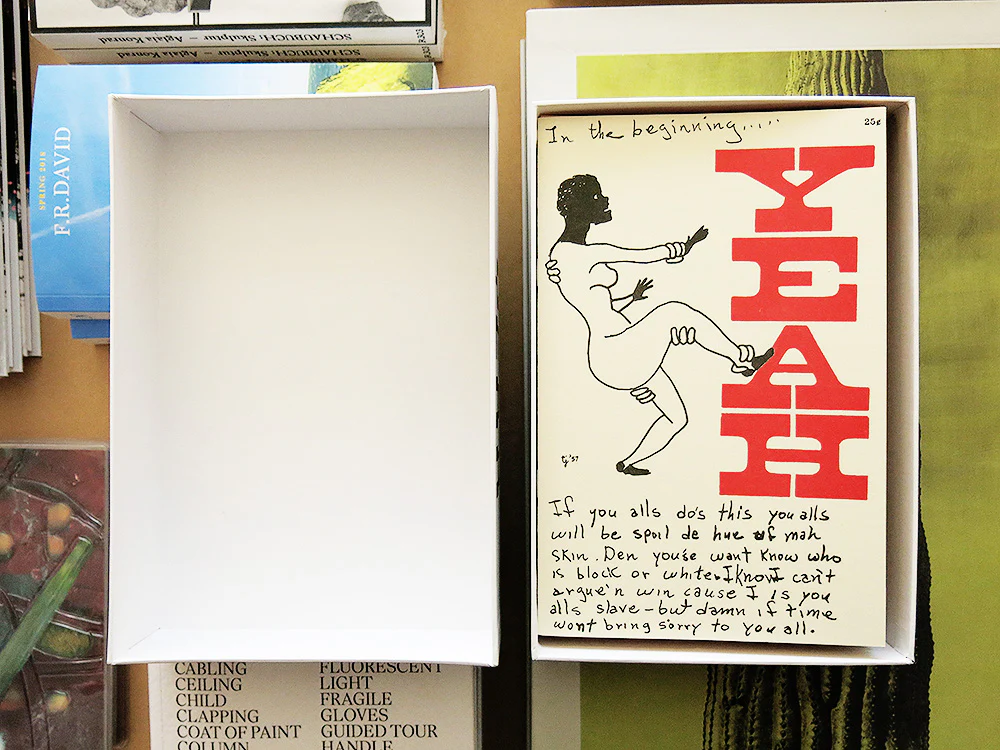 SCHAUBUCH: Skulptur — Aglaia Konrad
SCHAUBUCH: Skulptur — Aglaia Konrad
SPRING 2018
F.R.DAVID
In the beginning.....
25¢
YEAH
tj '37
If you alls do's this you alls
will be spoil de hue of mah
skin. Den youse want know who
is block or white. I know I can't
argue'n win cause I is you
alls slave – but damn if time
wont bring sorry to you all.
CABLING
CEILING
CHILD
CLAPPING
COAT OF PAINT
COLUMN
FLUORESCENT
LIGHT
FRAGILE
GLOVES
GUIDED TOUR
HANDLE